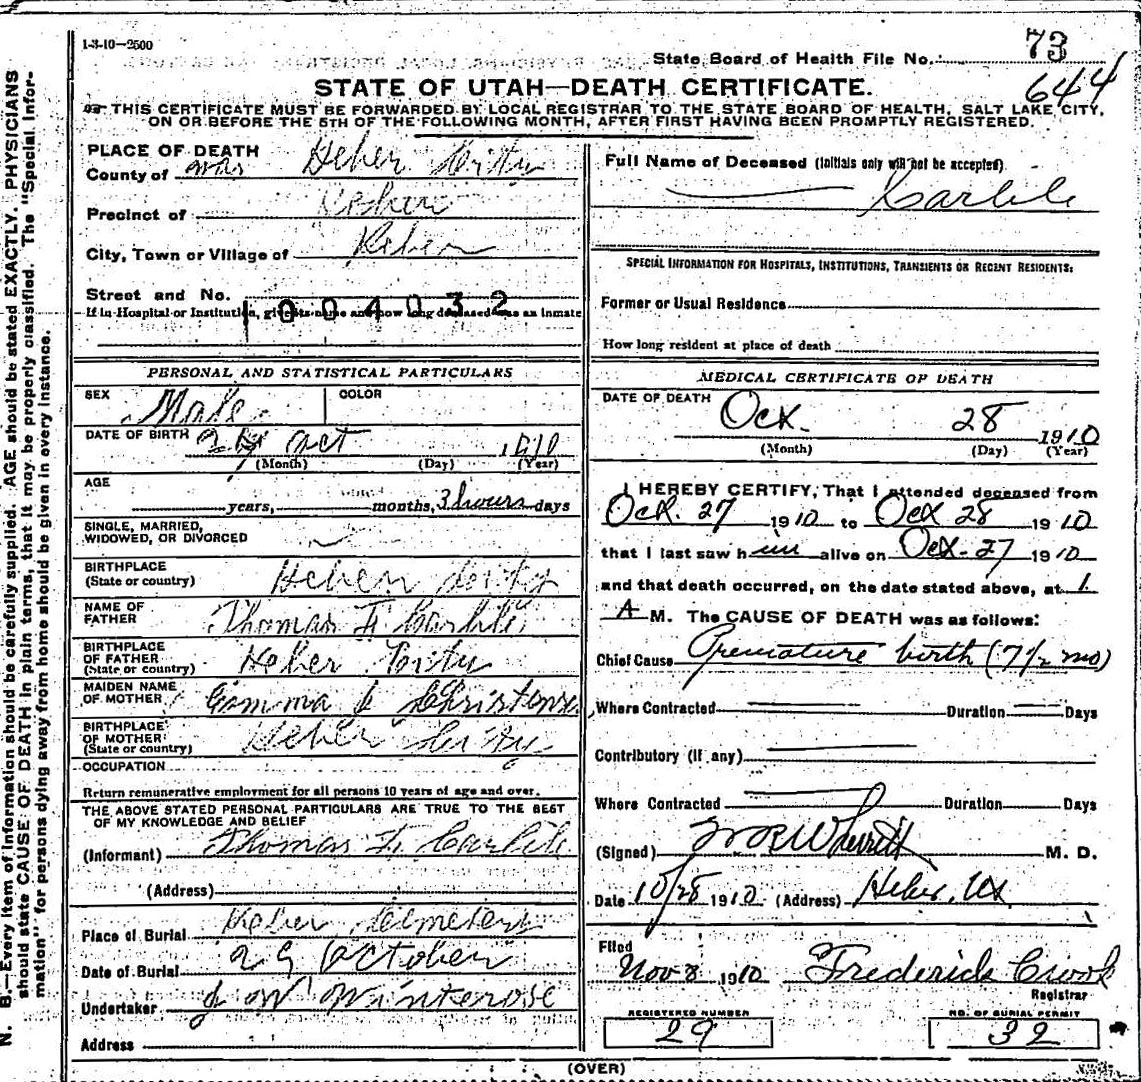 1-3-10-2500
State Board of Health File No. 73
644
STATE OF UTAH—DEATH CERTIFICATE.
THIS CERTIFICATE MUST BE FORWARDED BY LOCAL REGISTRAR TO THE STATE BOARD OF HEALTH, SALT LAKE CITY,
ON OR BEFORE THE 5TH OF THE FOLLOWING MONTH, AFTER FIRST HAVING BEEN PROMPTLY REGISTERED.
PLACE OF DEATH
County of Heber City
Precinct of
City, Town or Village of Heber
Street and No.
1004032
If in Hospital or Institution, give its name and how long deceased was an inmate
PERSONAL AND STATISTICAL PARTICULARS
SEX Male COLOR
DATE OF BIRTH Oct 1910
(Month) (Day) (Year)
AGE
years, months, 3 hours days
SINGLE, MARRIED,
WIDOWED, OR DIVORCED
BIRTHPLACE
(State or country) Heber City
NAME OF
FATHER Thomas F. Carlile
BIRTHPLACE
OF FATHER
(State or country) Heber City
MAIDEN NAME
OF MOTHER Emma Christense
BIRTHPLACE
OF MOTHER
(State or country) Heber City
OCCUPATION
Return remunerative employment for all persons 10 years of age and over.
THE ABOVE STATED PERSONAL PARTICULARS ARE TRUE TO THE BEST
OF MY KNOWLEDGE AND BELIEF
(Informant) Thomas F. Carlile
(Address)
Place of Burial Heber Cemetery
Date of Burial 29 October
Undertaker J W Winterose
Address
Full Name of Deceased (Initials only will not be accepted)
Carlile
SPECIAL INFORMATION FOR HOSPITALS, INSTITUTIONS, TRANSIENTS OR RECENT RESIDENTS:
Former or Usual Residence
How long resident at place of death
MEDICAL CERTIFICATE OF DEATH
DATE OF DEATH Oct. 28 1910
(Month) (Day) (Year)
I HEREBY CERTIFY, That I attended deceased from
Oct. 27 1910 to Oct 28 1910
that I last saw him alive on Oct-27 1910
and that death occurred, on the date stated above, at 1
A M. The CAUSE OF DEATH was as follows:
Chief Cause Premature birth (7 1/2 mo)
Where Contracted Duration Days
Contributory (if any)
Where Contracted Duration Days
(Signed) M. D.
Date 10/28 1910 (Address) Heber, Ut
Filed
Nov 8 1910 Frederick Crook
Registrar
REGISTERED NUMBER
29
NO. OF BURIAL PERMIT
32
(OVER)
N. B.—Every item of information should be carefully supplied. AGE should be stated EXACTLY. PHYSICIANS
should state CAUSE OF DEATH in plain terms, that it may be properly classified. The "Special Infor-
mation" for persons dying away from home should be given in every instance.